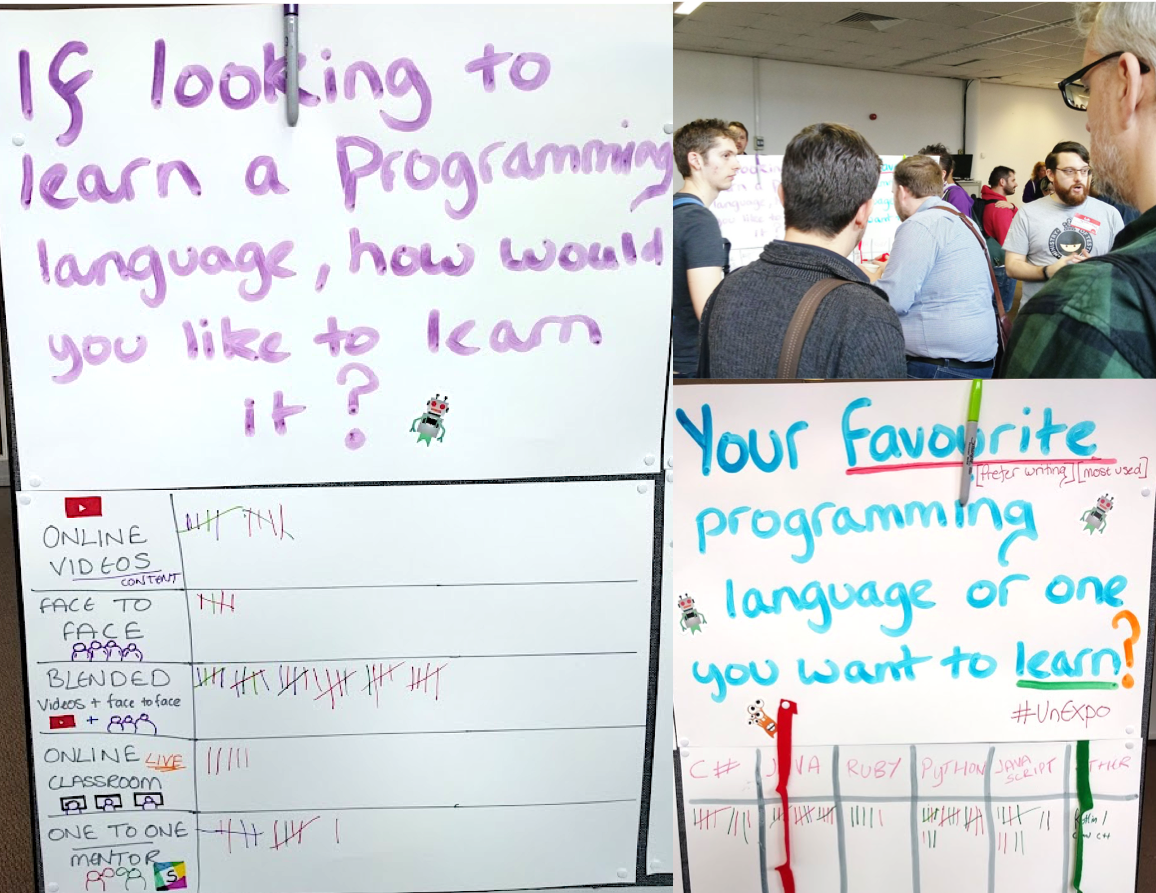 If looking to
learn a Programming
language, how would
you like to learn
it ?
ONLINE
VIDEOS
CONTENT
FACE TO
FACE
BLENDED
Videos + face to face
+
ONLINE LIVE
CLASSROOM
ONE TO ONE
MENTOR
S
Your favourite
[Prefer writing] [most used]
programming
language or one
you want to learn?
#UnExpo
C# JAVA RUBY PYTHON JAVA
SCRIPT
C++